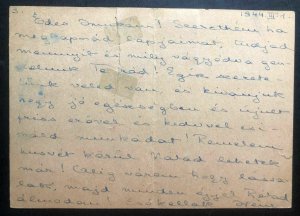 3.
1944. III. 1.
Édes Imukám! Szeretném ha
megkapnád lapjaimat, tudjad
mennyit és mily vágyódva gon-
dolunk Terád! Egész szerete-
tünk veled van és kivánjuk
hogy jó egészségben és ujult
friss erővel és kedvvel csi-
náld munkádat! Remélem
husvét körül Nálad lehetek
már! Alig várom hogy lássa-
lak, majd minden éjjel Rólad
álmodom!